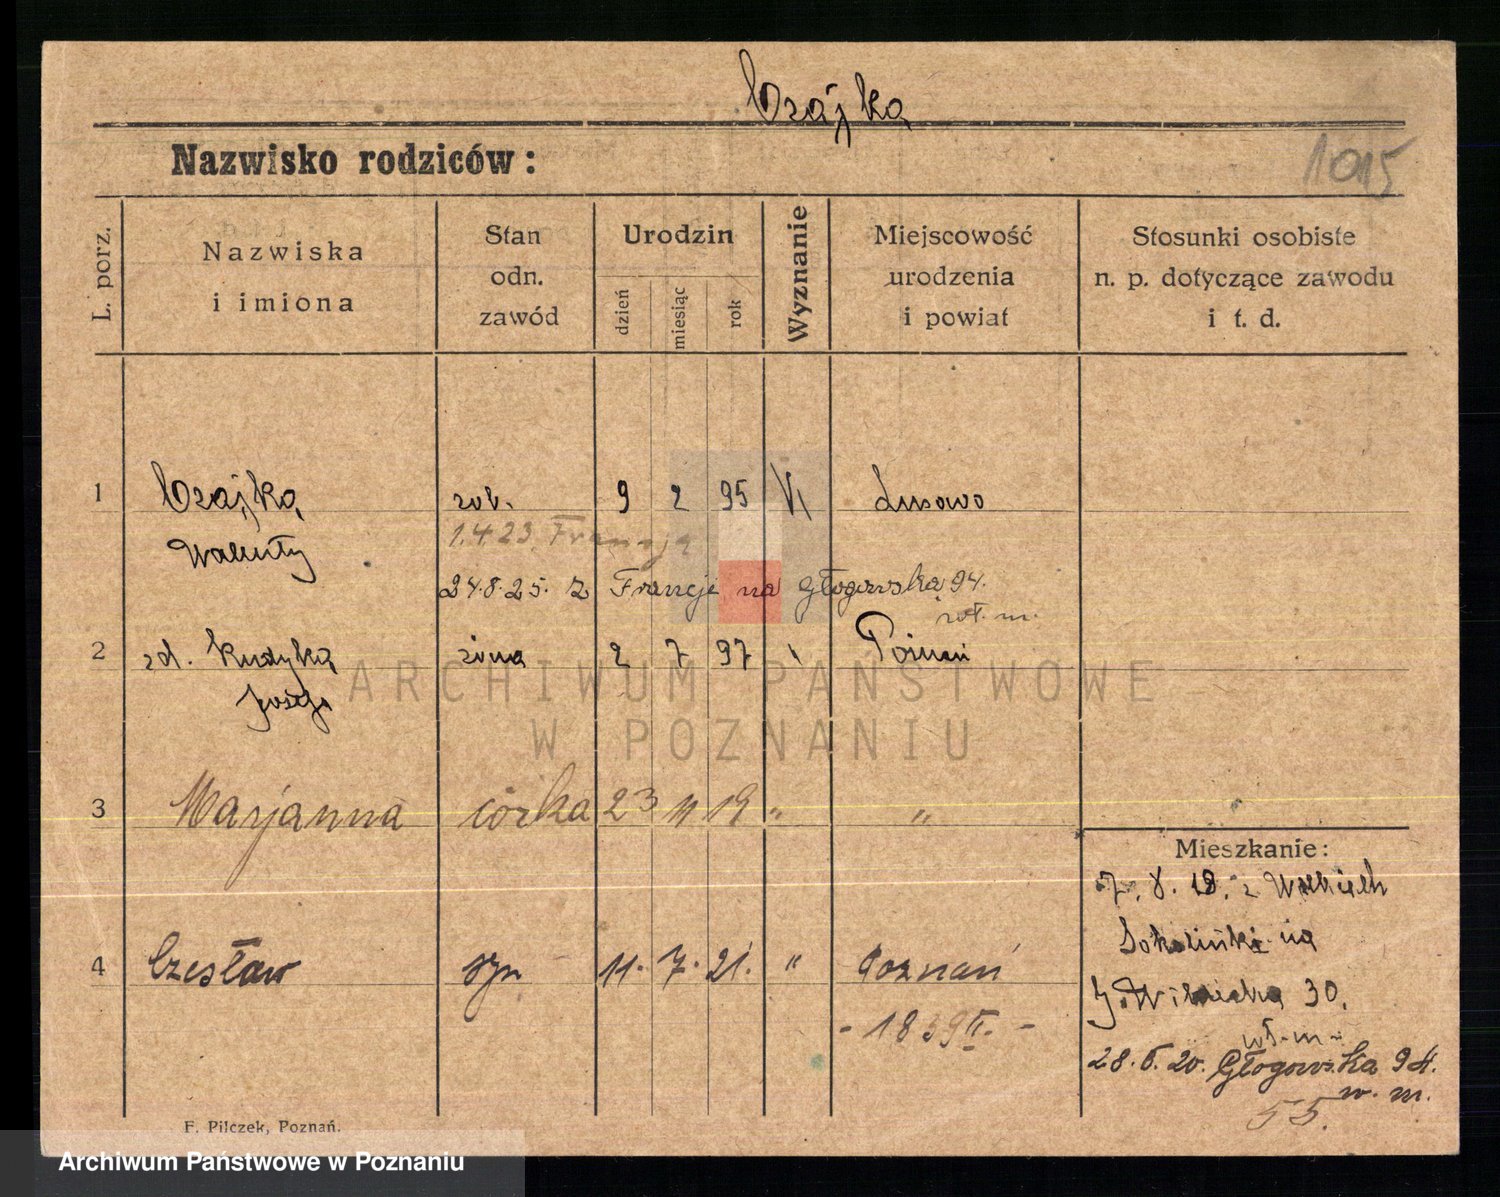 Czajka
Nazwisko rodziców:
1015
L. porz.
Nazwiska
i imiona
Stan
odn.
zawód
Urodzin
dzień
miesiąc
rok
Wyznanie
Miejscowość
urodzenia
i powiat
Stosunki osobiste
n. p. dotyczące zawodu
i t. d.
1 Czajka rob. 9 2 95 Lusowo
Walenty
1.4.23. Francja
24.8.25. z Francji na Głogowska 94.
2 zd. żona 2 7 97 " Poznań
Józefa
ARCHIWUM PAŃSTWOWE
W POZNANIU
3 Marjanna córka 23 11 19 " "
Mieszkanie:
7. 8. 18. z
na
4 Czesław syn 11. 7. 21. " Poznań
30.
- 1839 II. -
28. 6. 20. Głogowska 94.
w. m.
55.
F. Pilczek, Poznań.
Archiwum Państwowe w Poznaniu